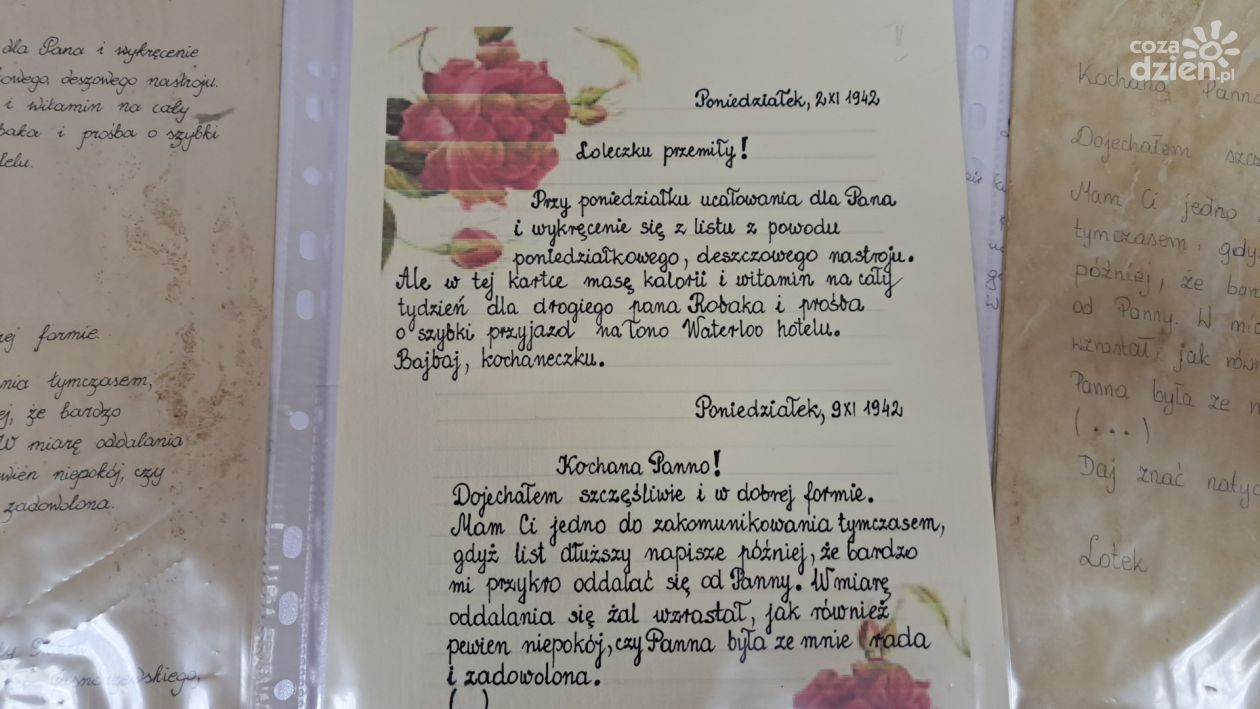 dla Pana i wykręcenie
deszowego nastroju.
i witamin na cały
i prośba o szybki
formie.
tymczasem,
że bardzo
W miarę oddalania
niepokój, czy
zadowolona.
Poniedziałek, 2 XI 1942
Loleczku przemiły!
Przy poniedziałku ucałowania dla Pana
i wykręcenie się z listu z powodu
poniedziałkowego, deszczowego nastroju.
Ale w tej kartce masę kalorii i witamin na cały
tydzień dla drogiego pana Robaka i prośba
o szybki przyjazd na łono Waterloo hotelu.
Bajbaj, kochaneczku.
Poniedziałek, 9 XI 1942
Kochana Panno!
Dojechałem szczęśliwie i w dobrej formie.
Mam Ci jedno do zakomunikowania tymczasem,
gdyż list dłuższy napisze później, że bardzo
mi przykro oddalać się od Panny. W miarę
oddalania się żal wzrastał, jak również
pewien niepokój, czy Panna była ze mnie rada
i zadowolona.
( )
coza
dzien.pl
Kochana Panno
Dojechałem
Mam Ci jedno
tymczasem, gdyż
później, że
od Panny. W
wzrastał, jak
Panna była ze
(...)
Daj znać
Lotek